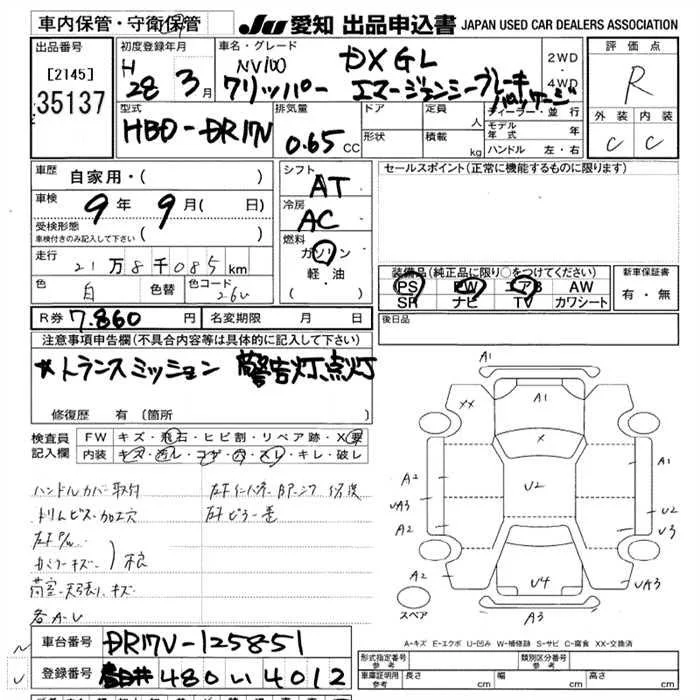 車内保管・守衛保管
JU 愛知 出品申込書 JAPAN USED CAR DEALERS ASSOCIATION
出品番号
[2145]
35137
初度登録年月
H 28 3月
車名・グレード
NV100 クリッパー
DX GL
エマージェンシーブレーキ パッケージ
2WD
4WD
評価点
R
外装 内装
C C
型式
HBD-DR17V
排気量
0.65 CC
ドア
形状
定員 人
積載 kg
ディーラー・並行
モデル年式 年
ハンドル 左・右
車歴 自家用・( )
車検 9年 9月( 日)
受検形態
車検付きのみ記入して下さい ( )
走行 21万8千085km
色 白 色替 色コード 26U
シフト AT
冷房 AC
燃料 ガソリン
軽・油
( )
セールスポイント(正常に機能するものに限ります)
装備品(純正品に限り○をつけてください)
PS PW エアB AW
SR ナビ TV カワシート
新車保証書
有・無
R券 7.860円 名変期限 月 日
後日品
注意事項申告欄(不具合内容等は具体的に記入して下さい)
*トランスミッション 警告灯点灯
修復歴 有(箇所
検査員記入欄
FW キズ・飛石・ヒビ割・リペア跡・X要
内装 キズ・汚レ・コゲ・穴・スレ・キレ・破レ
ハンドルカバー取付
トリムビス・加工穴
荷室・天張り、キズ
各A-U
A1
XX
A1
X
A1
A2
U2
UA3
U2
A2
UA3
A2
U4
UA3
A3
スペア
A-キズ E-エクボ U-凹み W-補修跡 S-サビ C-腐食 XX-交換済
車台番号 DR17V-125851
登録番号 480 い 4012
形式指定番号 参考
類別区分番号 参考
車庫証明用 参考 長さ cm 幅 cm 高さ cm